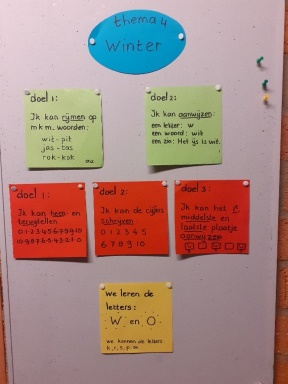 thema 4
Winter
doel 1:
Ik kan rijmen op
m.k.m. woorden:
wit - pit
jas - tas
rok - kok
doel 2:
Ik kan aanwijzen:
een letter: w
een woord: wit
een zin: Het ijs is wit.
doel 1:
Ik kan heen- en
terugtellen
0 1 2 3 4 5 6 7 8 9 10
10 9 8 7 6 5 4 3 2 1 0
doel 2:
Ik kan de cijfers
schrijven:
0 1 2 3 4 5
6 7 8 9 10
doel 3:
Ik kan het
middelste en
laatste plaatje
aanwijzen
We leren de
letters:
W en O
we kennen de letters
k, r, s, p, aa